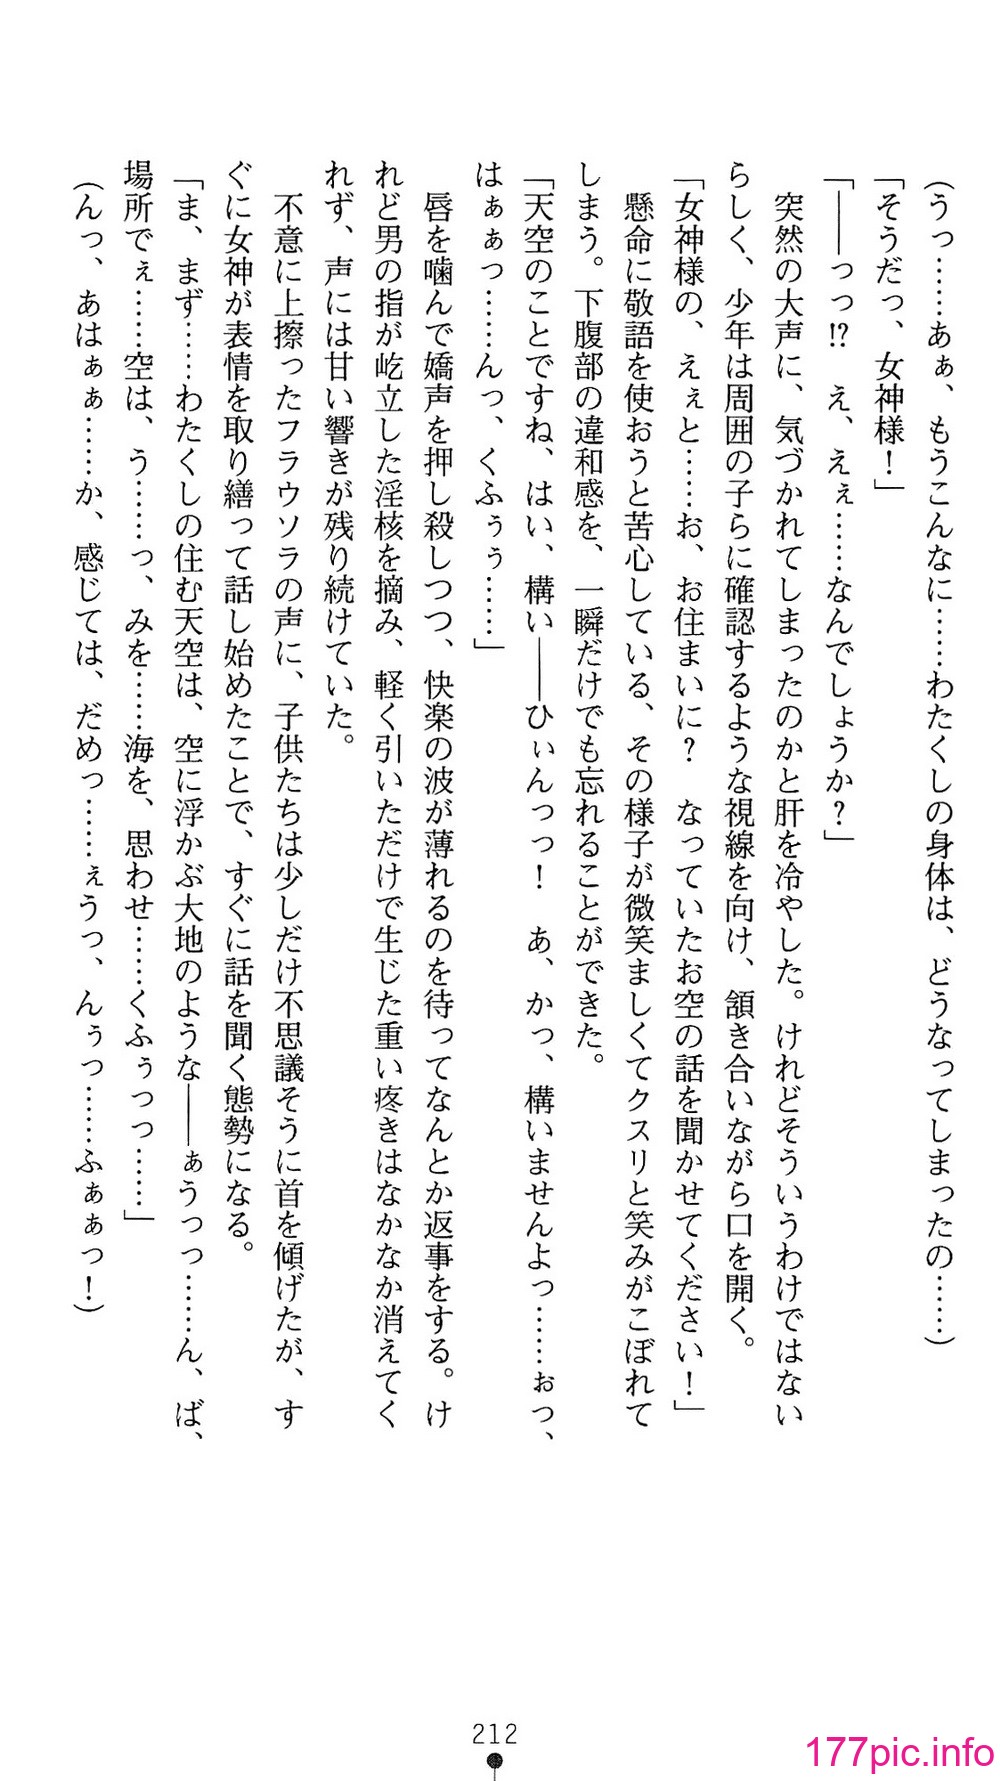 (うっ……あぁ、もうこんなに……わたくしの身体は、どうなってしまったの……)
「そうだっ、女神様！」
「――っっ!?　え、えぇ……なんでしょうか？」
　突然の大声に、気づかれてしまったのかと肝を冷やした。けれどそういうわけではない
らしく、少年は周囲の子らに確認するような視線を向け、頷き合いながら口を開く。
「女神様の、えぇと……お、お住まいに？　なっていたお空の話を聞かせてください！」
　懸命に敬語を使おうと苦心している、その様子が微笑ましくてクスリと笑みがこぼれて
しまう。下腹部の違和感を、一瞬だけでも忘れることができた。
「天空のことですね、はい、構い――ひぃんっっ！　あ、かっ、構いませんよっ……ぉっ、
はぁぁっ……んっ、くふぅぅ……」
　唇を噛んで嬌声を押し殺しつつ、快楽の波が薄れるのを待ってなんとか返事をする。け
れど男の指が屹立した淫核を摘み、軽く引いただけで生じた重い疼きはなかなか消えてく
れず、声には甘い響きが残り続けていた。
　不意に上擦ったフラウソラの声に、子供たちは少しだけ不思議そうに首を傾げたが、す
ぐに女神が表情を取り繕って話し始めたことで、すぐに話を聞く態勢になる。
「ま、まず……わたくしの住む天空は、空に浮かぶ大地のような――ぁうっっ……ん、ば、
場所でぇ……空は、う……っ、みを……海を、思わせ……くふぅっっ……」
(んっ、あはぁぁ……か、感じては、だめっ……ぇうっ、んぅっ……ふぁぁっ！)
212
177pic.info